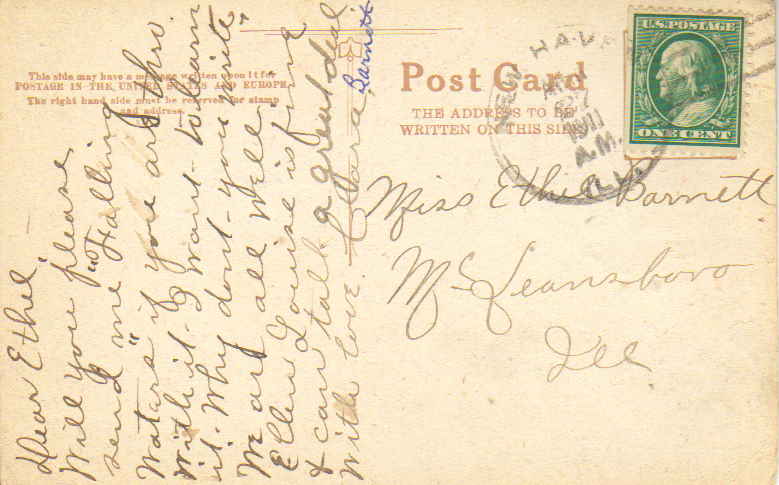 This side may have a message written upon it for
POSTAGE IN THE UNITED STATES AND EUROPE.
The right hand side must be reserved for stamp
and address.
Post Card
THE ADDRESS TO BE
WRITTEN ON THIS SIDE
NEW HAVEN
27
1911
A.M.
ILL.
U.S. POSTAGE
ONE CENT
Miss Ethel Barnett
Mc Leansboro
Ill
Dear Ethel,
Will you please
send me "Falling
Waters" if you are thro.
with it. I want to learn
it. Why dont you write,
We are all well.
Ellen Louise is fine
& can talk a great deal
With love. Clara
Barnett